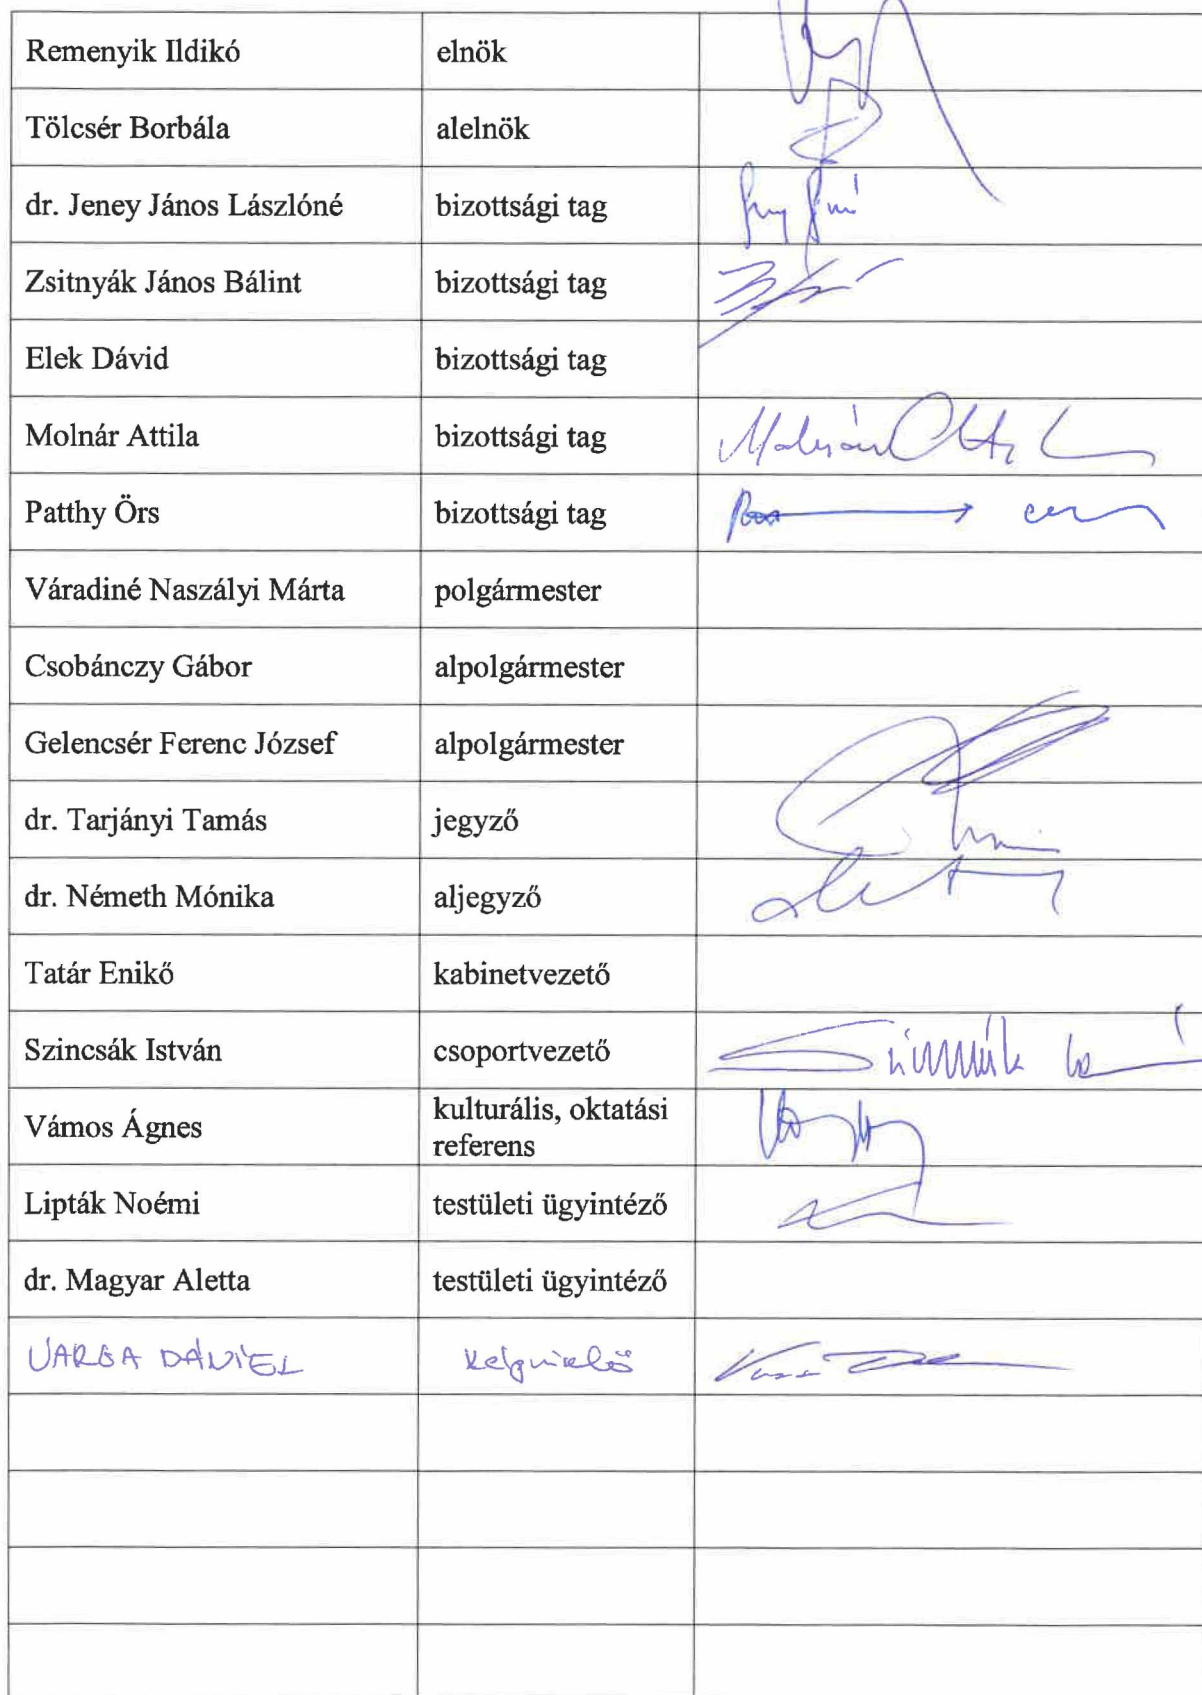 Remenyik Ildikó elnök
Tölcsér Borbála alelnök
dr. Jeney János Lászlóné bizottsági tag
Zsitnyák János Bálint bizottsági tag
Elek Dávid bizottsági tag
Molnár Attila bizottsági tag Molnár Attila
Patthy Örs bizottsági tag
Váradiné Naszályi Márta polgármester
Csobánczy Gábor alpolgármester
Gelencsér Ferenc József alpolgármester
dr. Tarjányi Tamás jegyző
dr. Németh Mónika aljegyző
Tatár Enikő kabinetvezető
Szincsák István csoportvezető
Vámos Ágnes kulturális, oktatási
referens
Lipták Noémi testületi ügyintéző
dr. Magyar Aletta testületi ügyintéző
VARGA DÁNIEL képviselő